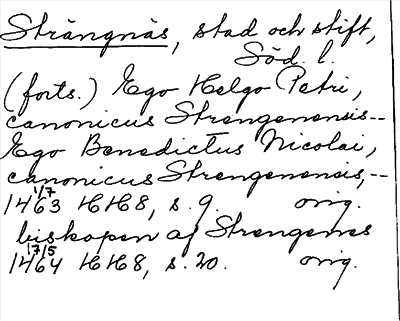 Strängnäs, stad och stift,
Söd. l.
(forts.) Ego Helgo Petri,
canonicus Strengenensis--
Ego Benedictus Nicolai,
canonicus Strengenensis,--
1/7
1463 HH8, s. 9. orig.
biskopen af Strengenes
17/5
1464 HH8, s. 20. orig.